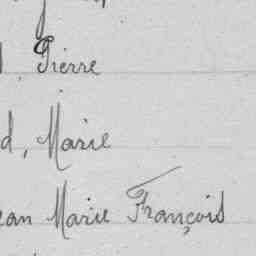 Pierre
d, Marie
ean Marie François